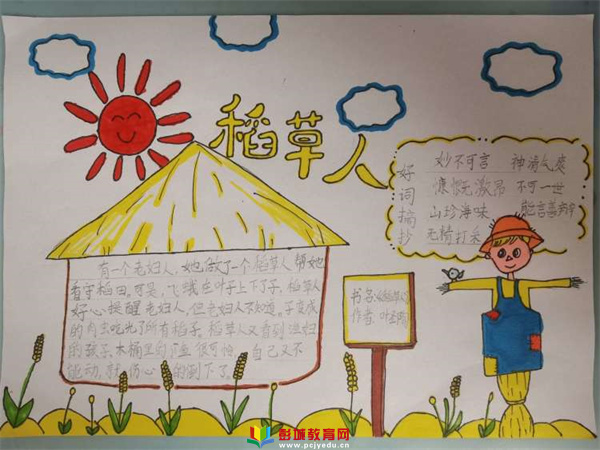 稻草人
好词摘抄
妙不可言 神清气爽
慷慨激昂 不可一世
山珍海味 能言善辩
无精打采
有一个老妇人，她做了一个稻草人帮她
看守稻田。可是，飞蛾在叶子上下了子，稻草人
好心提醒老妇人，但老妇人不知道。子变成
的肉虫吃光了所有稻子。稻草人又看到渔妇
的孩子、木桶里的鱼很可怜，自己又不
能动，就伤心的倒下了。
书名：《稻草人》
作者：叶圣陶
彭城教育网
www.pcjyedu.cn